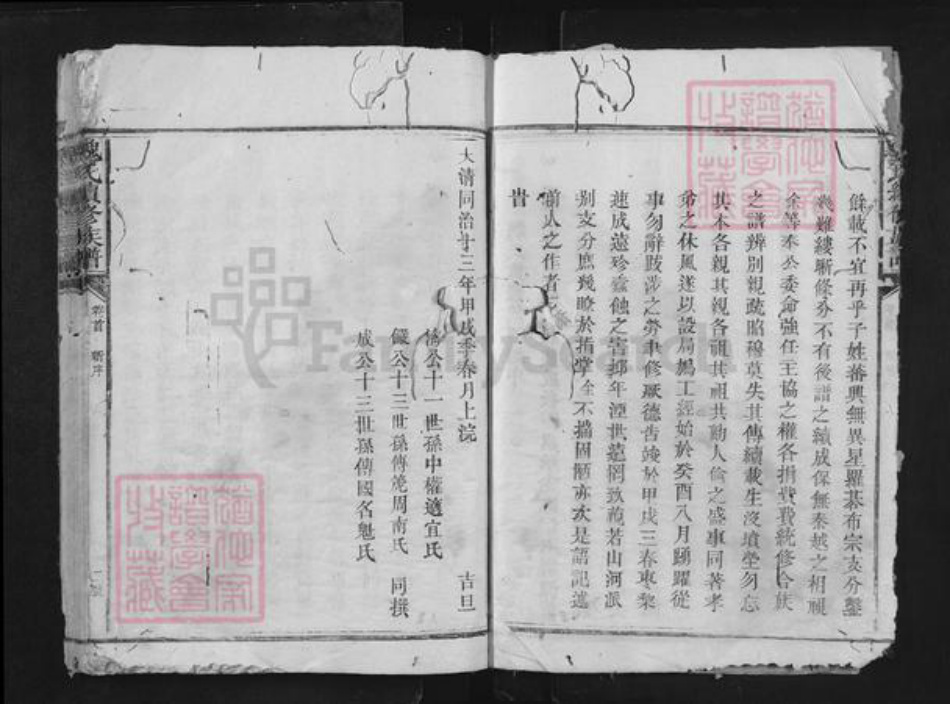 餘載不宜再乎子姓蕃興無異星羅棊布宗支分鑿
幾難縷晰條分不有後譜之續成保無秦越之相視
余等本公委命強任王協之權各捐費費統修合族
之譜辨別親疏昭穆莫失其傳續載生沒墳塋勿忘
其本各親其親各祖其祖共勷人倫之盛事同著孝
弟之休風遂以設局鳩工經始於癸酉八月踴躍從
事勿辭跋涉之勞聿修厥德告竣於甲戌三春棗黎
速成遠珍蠹蝕之害抑年湮世遠罔致
若山河派
别支分庶幾瞭於指掌
全不揣固陋亦次是語記述
前人之作者
書
大清同治十三年甲戌季春月上浣
吉旦
公十一世孫中權適宜氏
公十三世孫傳
周南氏
同撰
成公十三世孫傳國名魁氏
魏氏續修族譜
卷首
新序
譜學會
收藏
FamilySearch